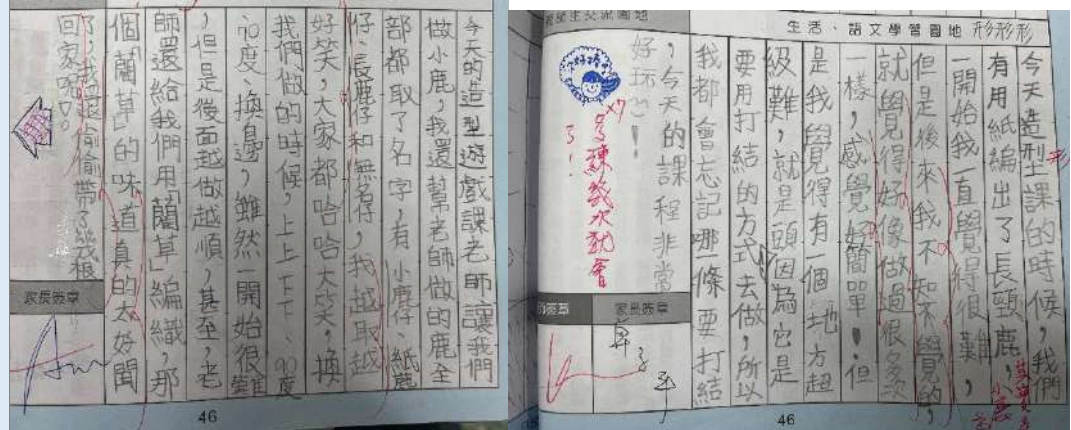 今天的造型遊戲課老師讓我們
做小鹿，我還幫老師做的鹿全
部都取了名字，有小鹿仔、紙鹿
仔、長鹿仔和無名仔，我越取越
好笑，大家都哈哈大笑，換
我們做的時候，上上下下、90度
、90度、換邊，雖然一開始很難
，但是後面越做越順，甚至，老
師還給我們用「藺草」編織，那
個「藺草」的味道真的太好聞
了，我還偷偷帶了幾根
回家呢！
家長簽章
46
生活、語文學習園地
形形形
今天造型課的時候，我們
有用紙編出了長頸鹿，
一開始我一直覺得很難，
但是後來我不知不覺的，
就覺得好像做過很多次
一樣，感覺好簡單！但
是我覺得有一個地方超
級難，就是頭，因為它是
要用打結的方式去做，所以
我都會忘記哪一條要打結
，今天的課程非常
好玩！
形
你好棒
多練幾次就會
了！
師簽章
家長簽章
46